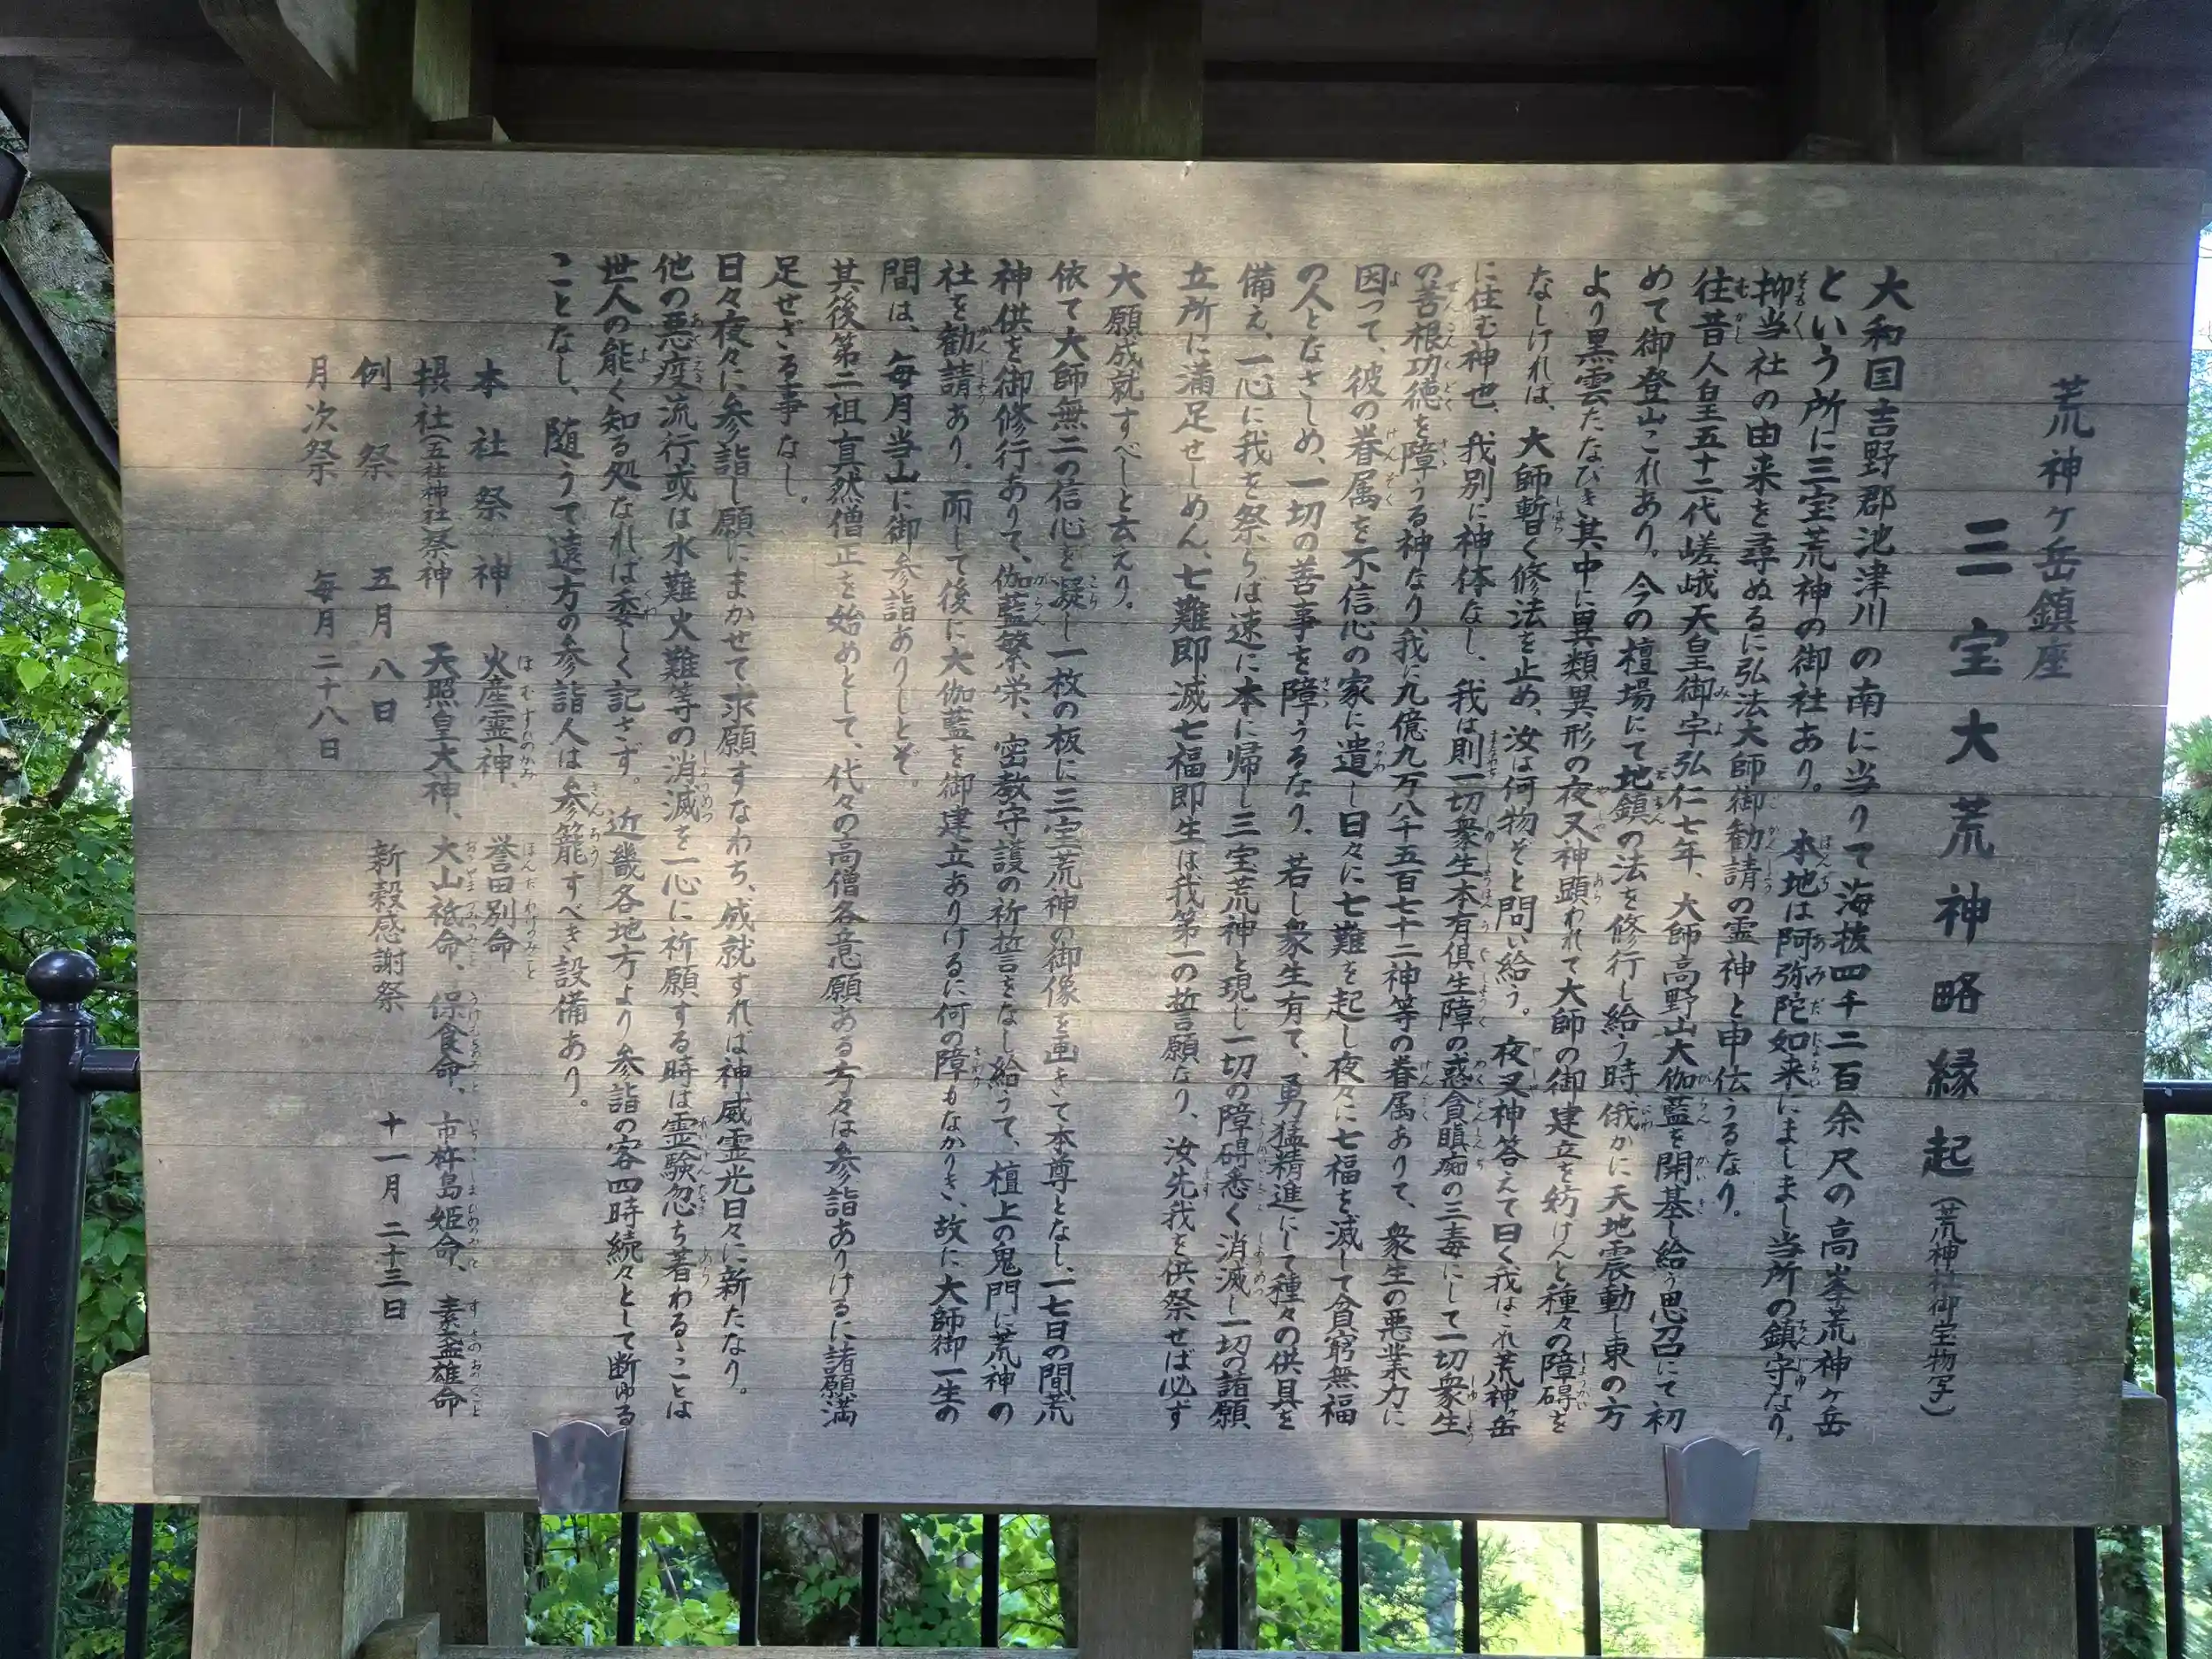 荒神ヶ岳鎮座
三宝大荒神略縁起（荒神社御宝物写）
大和国吉野郡池津川の南に当りて海抜四千二百余尺の高峯荒神ヶ岳
という所に三宝荒神の御社あり。本地は阿弥陀如来にましまし当所の鎮守なり。
抑当社の由来を尋ぬるに弘法大師御勧請の霊神と申伝うるなり。
往昔人皇五十二代嵯峨天皇御宇弘仁七年、大師高野山大伽藍を開基し給う思召にて初
めて御登山これあり。今の檀場にて地鎮の法を修行し給う時、俄かに天地震動し東の方
より黒雲たなびき其中に異類異形の夜叉神顕われて大師の御建立を妨けんと種々の障碍を
なしければ、大師暫く修法を止め、汝は何物ぞと問い給う。夜叉神答えて曰く我はこれ荒神ヶ岳
に住む神也、我別に神体なし、我は則一切衆生本有倶生障の惑貪瞋痴の三毒にして一切衆生
の善根功徳を障うる神なり我に九億九万八千五百七十二神等の眷属ありて、衆生の悪業力に
因つて、彼の眷属を不信心の家に遣し日々に七難を起し夜々に七福を滅して貧窮無福
の人となさしめ、一切の善事を障うるなり、若し衆生有て、勇猛精進にして種々の供具を
備え、一心に我を祭らば速に本に帰し三宝荒神と現じ一切の障碍悉く消滅し一切の諸願
立所に満足せしめん、七難即滅七福即生は我第一の誓願なり、汝先我を供祭せば必ず
大願成就すべしと云えり。
依て大師無二の信心を凝し一枚の板に三宝荒神の御像を画きて本尊となし、一七日の間荒
神供を御修行ありて、伽藍繁栄、密教守護の祈誓をなし給うて、檀上の鬼門に荒神の
社を勧請あり。而して後に大伽藍を御建立ありけるに何の障もなかりき、故に大師御一生の
間は、毎月当山に御参詣ありしとぞ。
其後第二祖真然僧正を始めとして、代々の高僧各意願ある方々は参詣ありけるに諸願満
足せざる事なし。
日々夜々に参詣し願にまかせて求願すなわち、成就すれば神威霊光日々に新たなり。
他の悪疫流行或は水難火難等の消滅を一心に祈願する時は霊験忽ち著わるゝことは
世人の能く知る処なれば委しく記さず。近畿各地方より参詣の客四時続々として断ゆる
ことなし、随うて遠方の参詣人は参籠すべき設備あり。
本社祭神　火産霊神、誉田別命
摂社（五社神社）祭神　天照皇大神、大山祇命、保食命、市杵島姫命、素盞雄命
例祭　五月八日　新穀感謝祭　十一月二十三日
月次祭　毎月二十八日